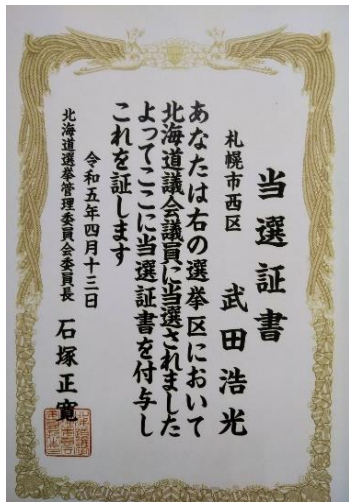 当選証書
札幌市西区 武田浩光
あなたは右の選挙区において
北海道議会議員に当選されました
よってここに当選証書を付与し
これを証します
令和五年四月十三日
北海道選挙管理委員会委員長 石塚正寛